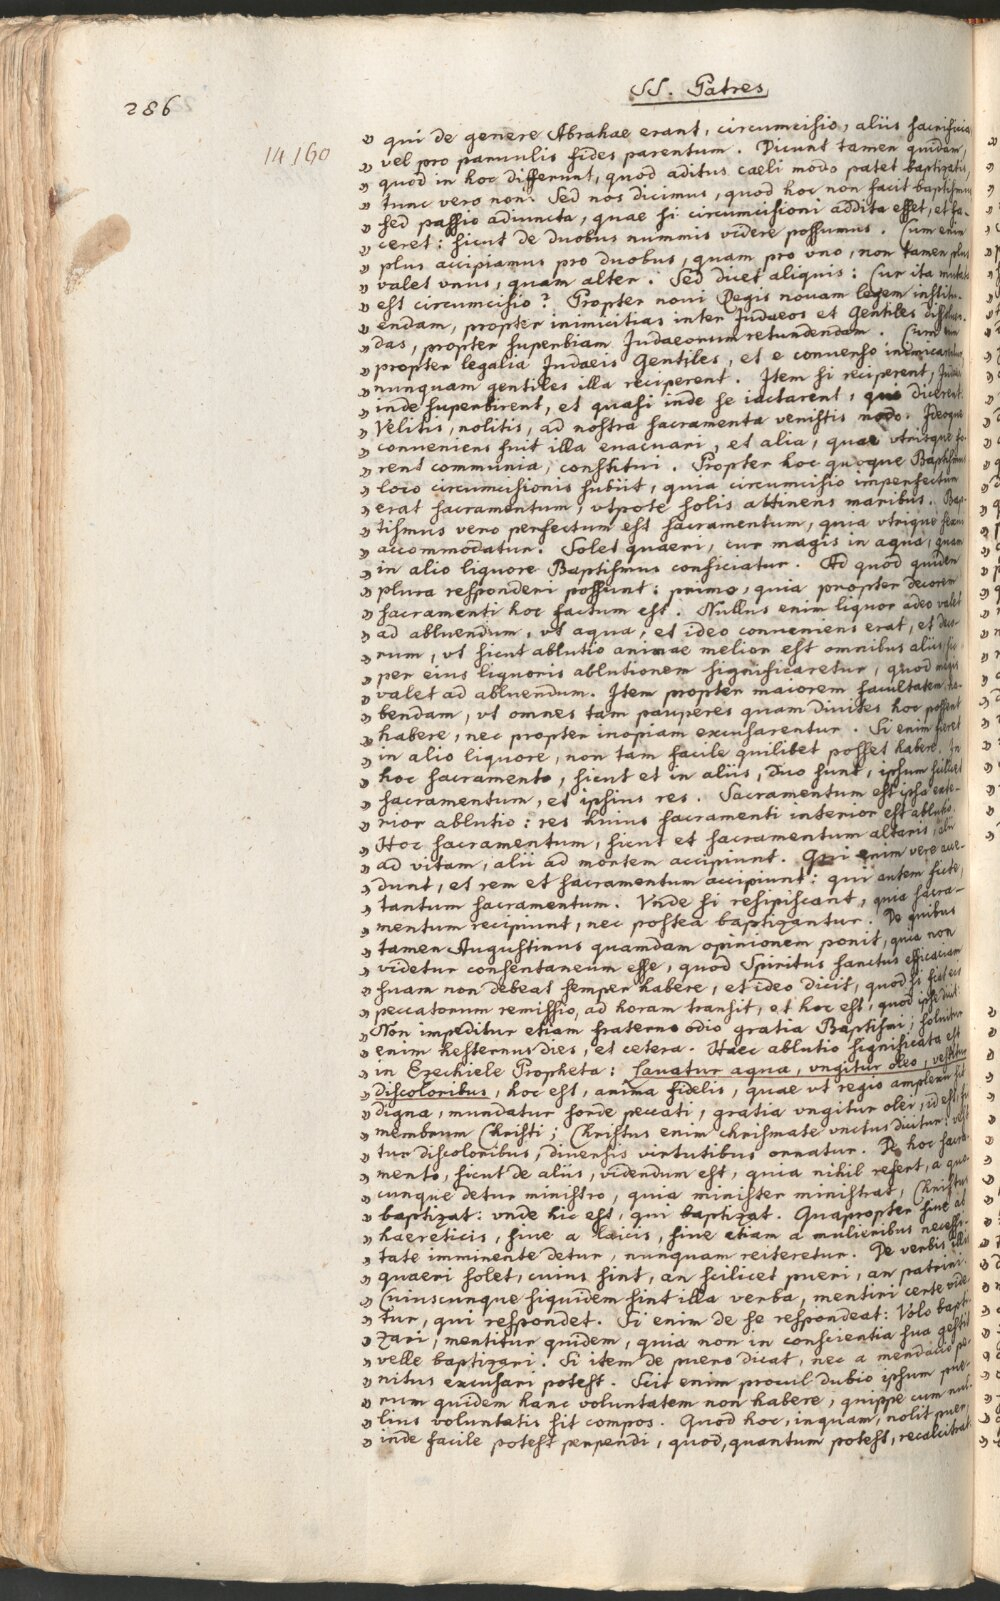 286
SS. Patres
14,160
" qui de genere Abrahae erant, circumcisio, aliis sacrificia
" vel pro parvulis fides parentum. Dicunt tamen quidam,
" quod in hoc differunt, quod aditus caeli modo patet baptizatis,
" tunc vero non. Sed nos dicimus, quod hoc non facit baptismus
" sed passio adiuncta, quae si circumcisioni addita esset, et fa-
" ceret: sicut de duobus nummis videre possumus. Cum enim
" plus accipiamus pro duobus, quam pro uno, non tamen plus
" valet vnus, quam alter. Sed dicet aliquis: Cur ita mutata
" est circumcisio? Propter noui Regis nouam legem institu-
" endam, propter inimicitias inter Judaeos et Gentiles
" das, propter superbiam Judaeorum retundendam. Cum enim
" propter legalia Judaeis Gentiles, et e conuerso inimicarentur,
" nunquam gentiles illa reciperent. Item si reciperent, Judaei
" inde superbirent, et quasi inde se iactarent, dicerent:
" Velitis, nolitis, ad nostra sacramenta venistis modo. Ideoque
" conueniens fuit illa euacuari, et alia, quae vtrisque fo-
" rent communia, constitui. Propter hoc quoque Baptismus
" loco circumcisionis subiit, quia circumcisio imperfectum
" erat sacramentum, vtpote solis attinens maribus. Bap-
" tismus vero perfectum est sacramentum, quia vtrique sexui
" accommodatur. Solet quaeri, cur magis in aqua, quam
" in alio liquore Baptismus conficiatur. Ad quod quidem
" plura responderi possunt: primo, quia propter decorem
" sacramenti hoc factum est. Nullus enim liquor adeo valet
" ad abluendum, vt aqua, et ideo conueniens erat, et deco-
" rum, vt sicut ablutio animae melior est omnibus aliis, sic
" per eius liquoris ablutionem significaretur, quod magis
" valet ad abluendum. Item propter maiorem facultatem ha-
" bendam, vt omnes tam pauperes quam diuites hoc possent
" habere, nec propter inopiam excusarentur. Si enim fieret
" in alio liquore, non tam facile quilibet posset habere. In
" hoc sacramento, sicut et in aliis, duo sunt, ipsum scilicet
" sacramentum, et ipsius res. Sacramentum est ipsa exte-
" rior ablutio: res huius sacramenti interior est ablutio.
" Hoc sacramentum, sicut et sacramentum altaris, alii
" ad vitam, alii ad mortem accipiunt. Qui enim vere acce-
" dunt, et rem et sacramentum accipiunt: qui autem ficte,
" tantum sacramentum. Vnde si resipiscant, quia sacra-
" mentum recipiunt, nec postea baptizantur. De quibus
" tamen Augustinus quamdam opinionem ponit, quia non
" videtur consentaneum esse, quod Spiritus sanctus efficaciam
" suam non debeat semper habere, et ideo dicit, quod si fiat eis
" peccatorum remissio, ad horam transit, et hoc est, quod ipse dicit:
" Non impeditur etiam fraterno odio gratia Baptismi; soluitur
" enim hesternus dies, et cetera. Haec ablutio significata est
" in Ezechiele Propheta: Lauatur aqua, vngitur oleo, vestitur
" discoloribus, hoc est, anima fidelis, quae vt regio amplexu sit
" digna, mundatur sorde peccati, gratia vngitur olei, id est, fit
" membrum Christi; Christus enim chrismate vnctus dicitur: vesti
" tur discoloribus, diuersis virtutibus ornatur. De hoc sacra-
" mento, sicut de aliis, videndum est, quia nihil refert, a quo-
" cunque detur ministro, quia minister ministrat, Christus
" baptizat: vnde hic est, qui baptizat. Quapropter siue ab
" haereticis, siue a laicis, siue etiam a mulieribus necessi-
" tate imminente detur, nunquam reiteretur. De verbis illis
" quaeri solet, cuius sint, an scilicet pueri, an patrini.
" Cuiuscunque siquidem sint illa verba, mentiri certe vide-
" tur, qui respondet. Si enim de se respondeat: Volo bapti-
" zari, mentitur quidem, quia non in conscientia sua gestit
" velle baptizari. Si item de puero dicat, nec a mendacio pe-
" nitus excusari potest. Scit enim procul dubio ipsum pue-
" rum quidem hanc voluntatem non habere, quippe cum nul-
" lius voluntatis sit compos. Quod hoc, inquam, nolit puer,
" inde facile potest perpendi, quod, quantum potest, recalcitrat